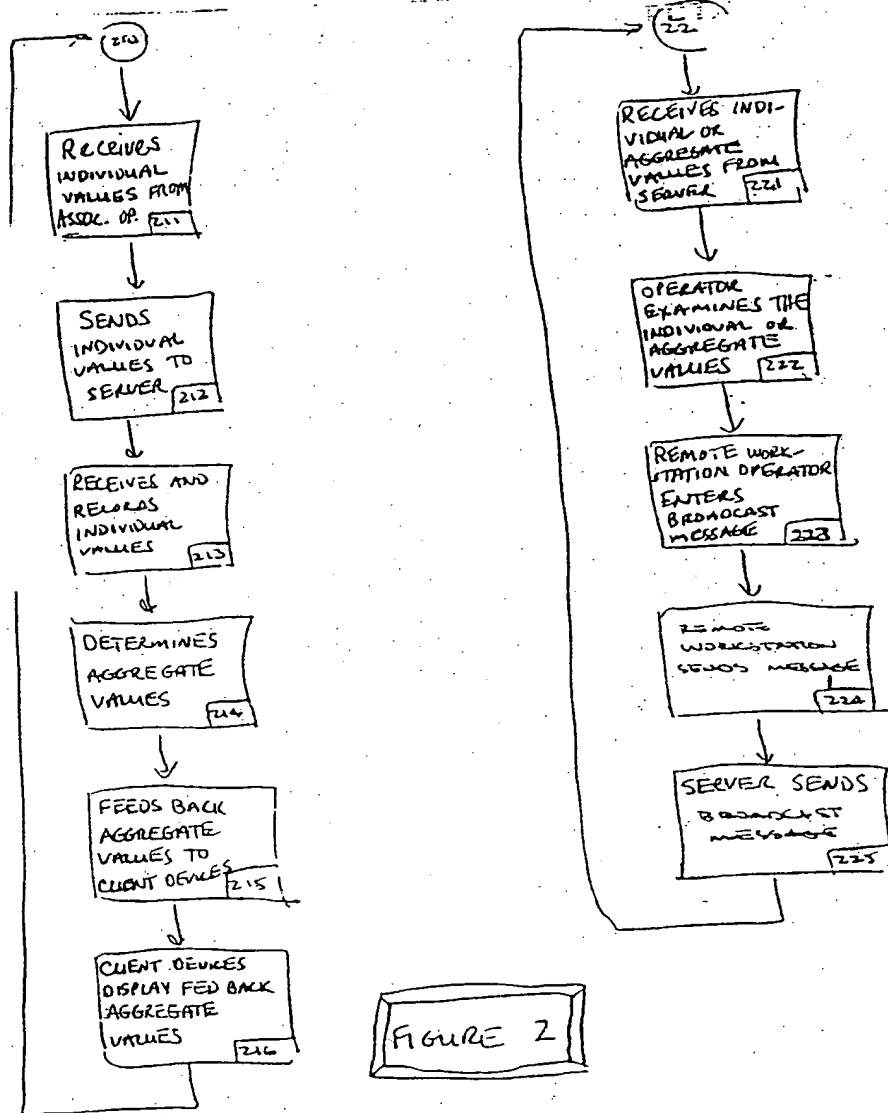 210
RECEIVES
INDIVIDUAL
VALUES FROM
ASSOC. OP. 211
SENDS
INDIVIDUAL
VALUES TO
SERVER 212
RECEIVES AND
RECORDS
INDIVIDUAL
VALUES 213
DETERMINES
AGGREGATE
VALUES 214
FEEDS BACK
AGGREGATE
VALUES TO
CLIENT DEVICES 215
CLIENT DEVICES
DISPLAY FED BACK
AGGREGATE
VALUES 216
RECEIVES INDI-
VIDUAL OR
AGGREGATE
VALUES FROM
SERVER 221
OPERATOR
EXAMINES THE
INDIVIDUAL OR
AGGREGATE
VALUES 222
REMOTE WORK-
STATION OPERATOR
ENTERS
BROADCAST
MESSAGE 223
REMOTE
WORKSTATION
SENDS MESSAGE
224
SERVER SENDS
BROADCAST
MESSAGE
225
FIGURE 2